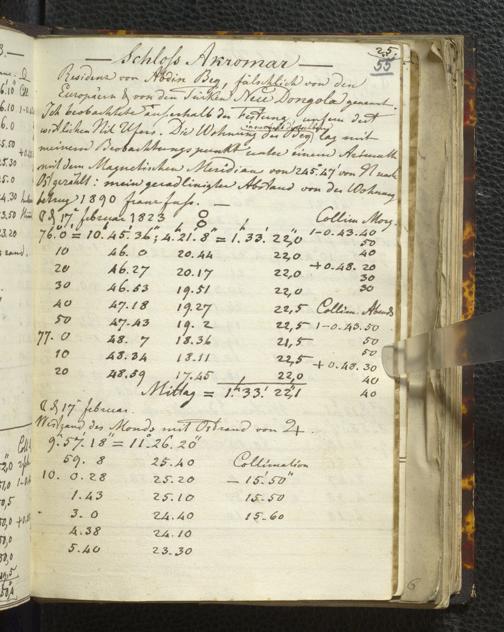 25.
55
— Schloss Akromar —
Residenz von Abdin Beg, fälschlich von den
Europäern & von den Türken Neu Dongola genannt.
Ich beobachtete ausserhalb der Festung, unfern des
westlichen Nil Ufers. Die Wohnung des Beg lag mit
meinem Beobachtungspunkt unter einem Azimuth
mit dem Magnetischen Meridian von 245.47' von N nach
O gezählt: mein geradlinigter Abstand von der Wohnung
betrug 1890 franz. fuss. —
d 17 februar 1823 ☉ Collim Morg.
76.0 = 10.45'.36"; 4.21.8" = 1.33'.22,0 1-0.43.40
50
10 46.0 20.44 22,0 40
20 46.27 20.17 22,0 +0.48.20
30
30 46.53 19.51 22,0 30
40 47.18 19.27 22,5 Collim Abends
50 47.43 19.2 22,5 1-0.43.50
77.0 48.7 18.36 21,5 50
10 48.34 18.11 22,5 50
+0.48.30
20 48.59 17.45 22,0 40
Mittag = 1.33'.22,1 40
d 17 februar.
des Monds mit Ostrand von ♃
9.57.18" = 11.26.20"
59.8 25.40 Collimation
10.0.28 25.20 — 15.50"
1.43 25.10 15.50
3.0 24.40 15.60
4.38 24.10
5.40 23.30
6